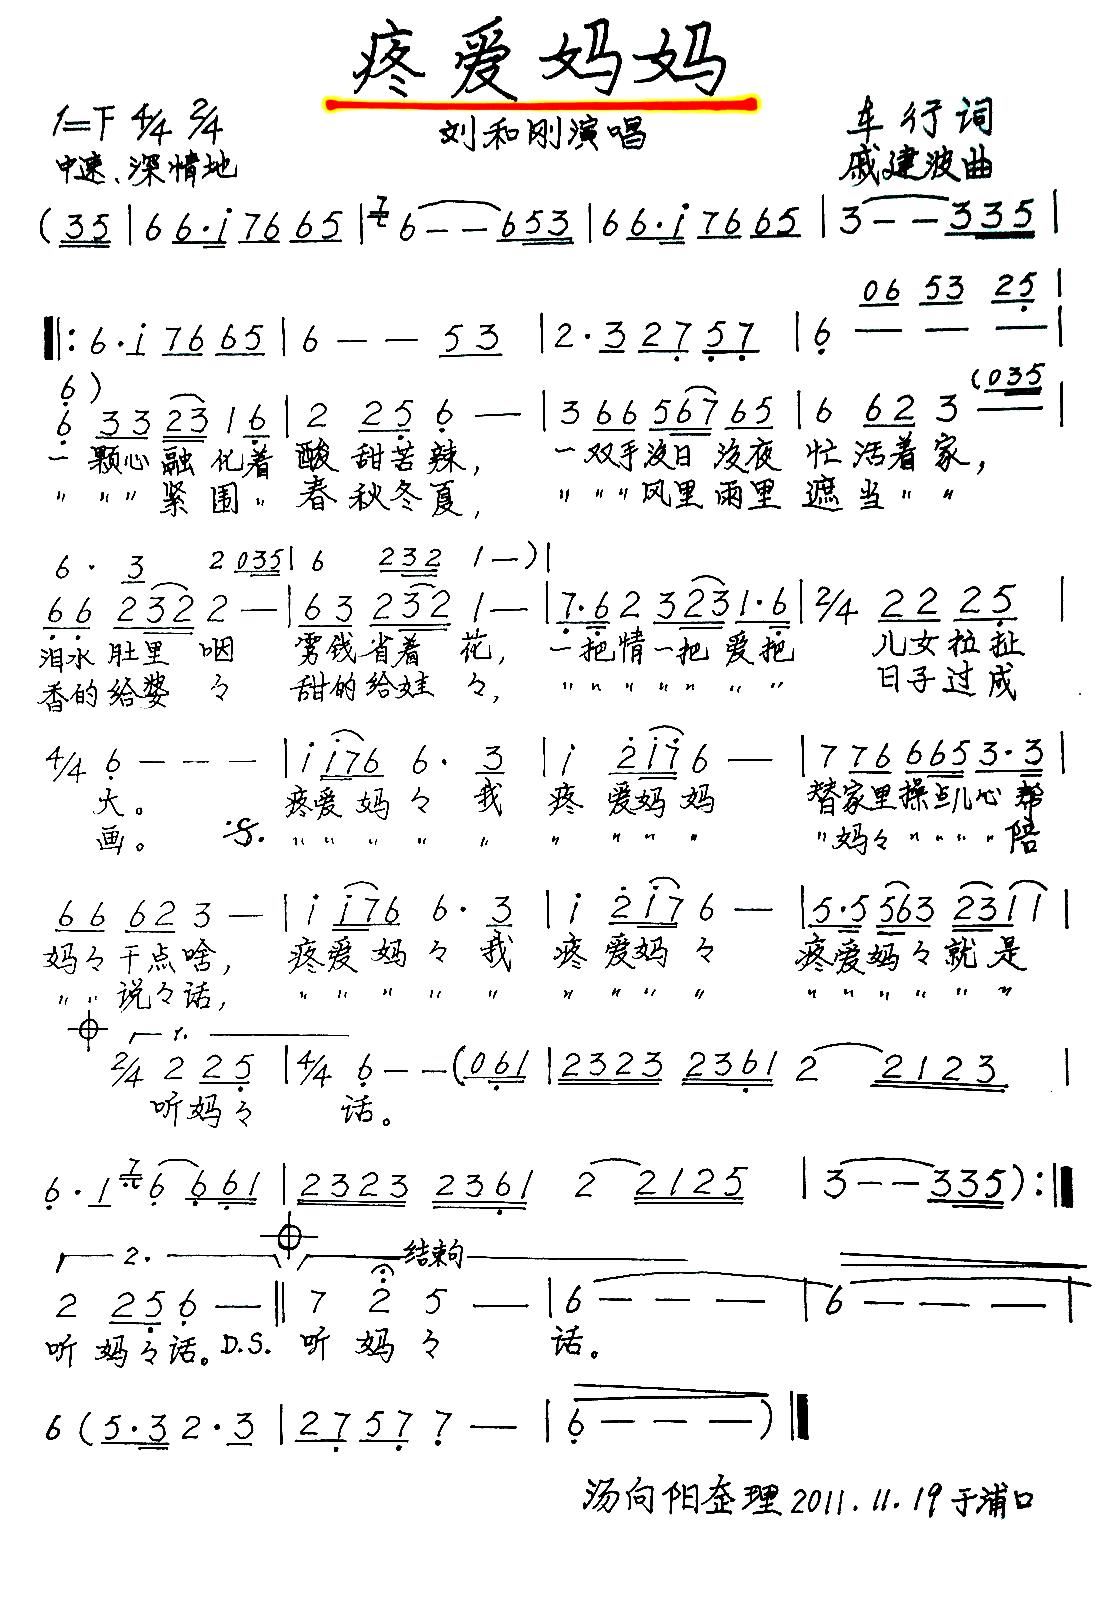 疼爱妈妈
1=F 4/4 2/4
刘和刚演唱
车行词
中速、深情地
戚建波曲
(35 | 66·i 7665 | 6--653 | 66·i 7665 | 3--335 |
06 53 25 |
‖: 6·i 7665 | 6--53 | 2·3 27 57 | 6---|
6)
(035
6 33 23 16 | 2 25 6- | 3 66 567 65 | 6 62 3-- |
一颗心融化着酸甜苦辣，一双手没日没夜忙活着家，
〃〃〃紧围〃春秋冬夏，〃〃〃风里雨里遮当〃〃
6·3 2 035 | 6 232 1-) |
66 232 2- | 63 232 1- | 7·6 2 323 1·6 | 2/4 22 25 |
泪水肚里咽 雾钱省着花，一把情一把爱把 儿女拉扯
香的给婆々 甜的给娃々，〃〃〃〃〃〃 日子过成
4/4 6--- | i i76 6·3 | i 2i7 6- | 7 776 665 3·3 |
大。 疼爱妈々我 疼爱妈妈 替家里操点儿心帮
画。 :S. 〃〃〃〃〃〃〃〃〃 〃妈々〃〃〃〃陪
66 62 3- | i i76 6·3 | i 2i7 6- | 5·5 563 23 11 |
妈々干点啥， 疼爱妈々我 疼爱妈々 疼爱妈々就是
〃〃说々话，〃〃〃〃〃〃〃〃〃〃〃〃〃〃〃
1.
2/4 2 25 | 4/4 6--(061 | 2323 2361 2 2123 |
听妈々 话。
6·1 6 661 | 2323 2361 2 2125 | 3--335) :‖
2. 结束句
2 25 6- ‖ 7 2 5 - | 6--- | 6--- |
听妈々话。D.S. 听妈々 话。
6 (5·3 2·3 | 27 57 7- | 6---) ‖
汤向阳整理 2011.11.19于浦口